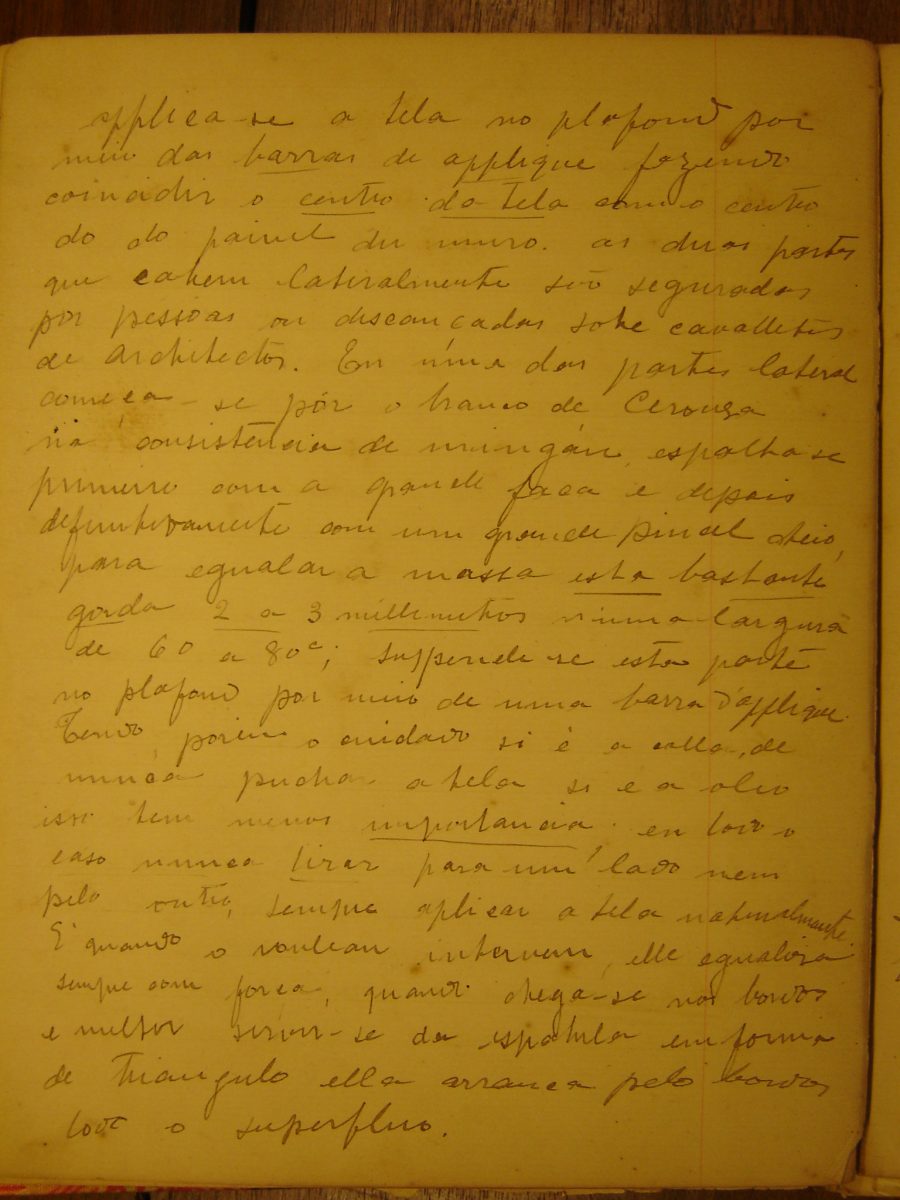 applica-se a tela no plafond por
meio das barras de applique fazendo
coincidir o centro da tela com o centro
do do painel du muro. as duas partes
que cahem lateralmente são seguradas
por pessoas ou descançadas sobre cavalletes
de architectos. Em uma das partes lateral
começa-se pôr o branco de Cerouza
na consistência de mingáu, espalha se
primeiro com a grande faca e depois
definitivamente com um grande pincel
para egualar a massa esta bastante
gorda 2 a 3 millimetros n'uma largura
de 60 a 80c; suspende-se esta parte
no plafond por meio de uma barra d'applique.
Tendo, porem o cuidado si é a colla, de
nunca puchar a tela si e a oleo
isso tem menos importancia, en todo o
caso nunca tirar para um lado nem
pelo outro, sempre aplicar a tela naturalmente.
E quando o rouleau intervem, elle egualisa
sempre com força, quando chega-se nos bordos
e melhor servir-se da espatula em forma
de triangulo ella arranca pelo bordos
todo o superfluo.